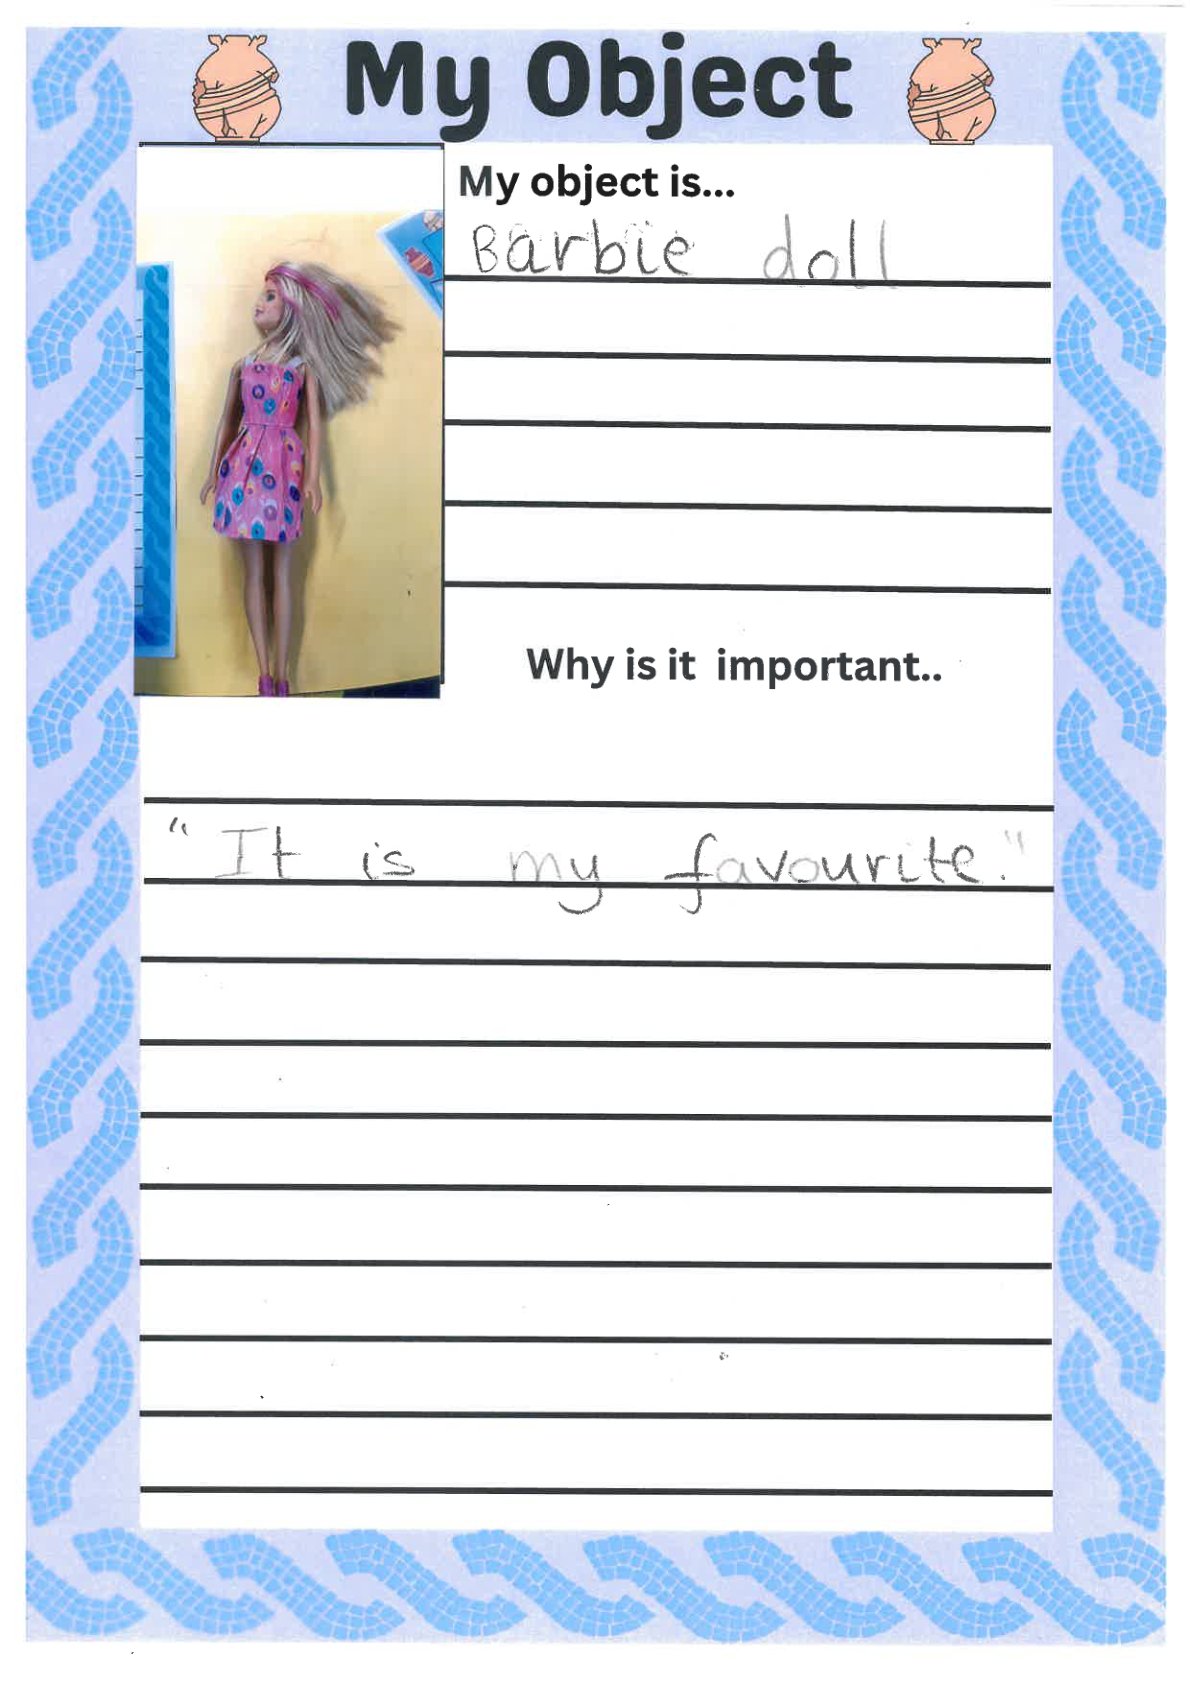 My Object
My object is...
Barbie doll
Why is it important..
"It is my favourite."